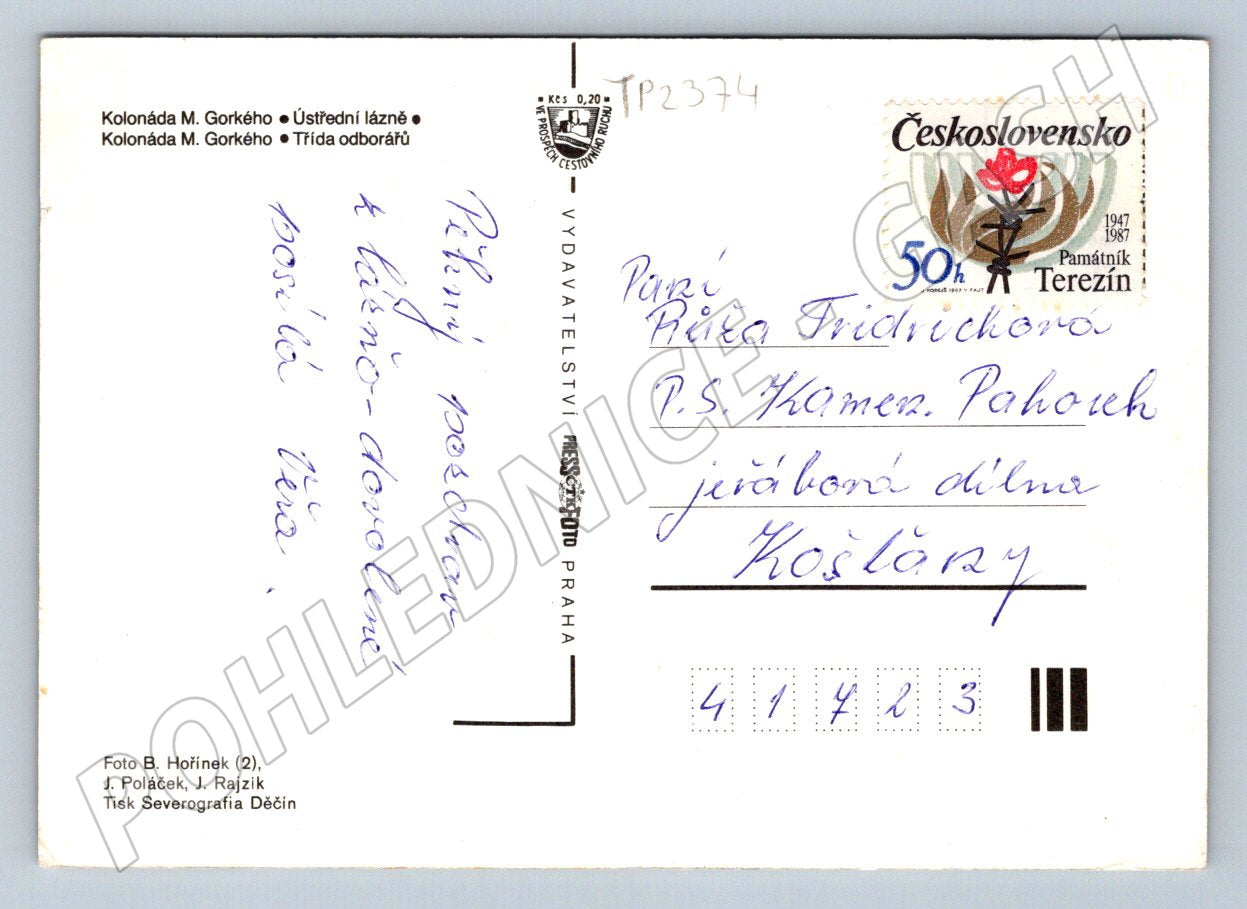 Kolonáda M. Gorkého • Ústřední lázně •
Kolonáda M. Gorkého • Třída odborářů
Kčs 0,20
VE PROSPĚCH CESTOVNÍHO RUCHU
TP2374
Československo
1947
1987
Památník
Terezín
50h
Pěkný pozdrav
z lázňo-dovolené
posílá Věra.
VYDAVATELSTVÍ PRESSFOTO PRAHA
ČTK
Paní
Růža Fridrichová
P.S. Kamen. Pahorek
jeřábová dílna
Košťany
41723
Foto B. Hořínek (2),
J. Poláček, J. Rajzik
Tisk Severografia Děčín
POHLEDNICE - G